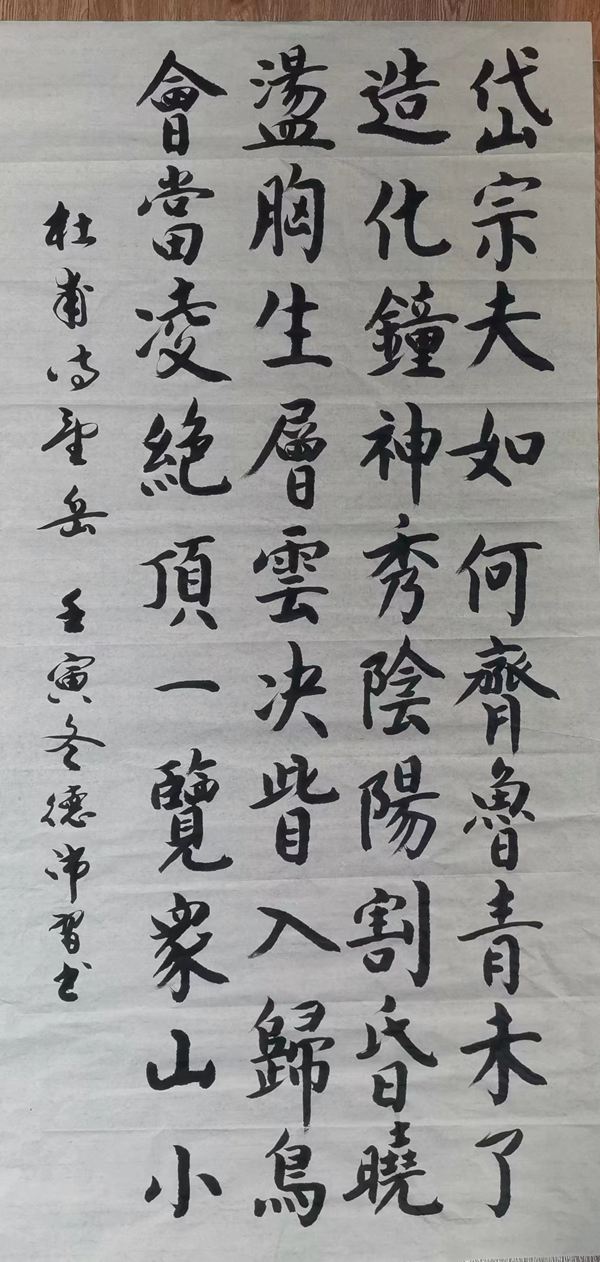 岱宗夫如何齊魯青未了
造化鐘神秀陰陽割昏曉
盪胸生層雲决眥入歸鳥
會當凌絕頂一覽衆山小
杜甫诗望岳 壬寅冬德沛習书